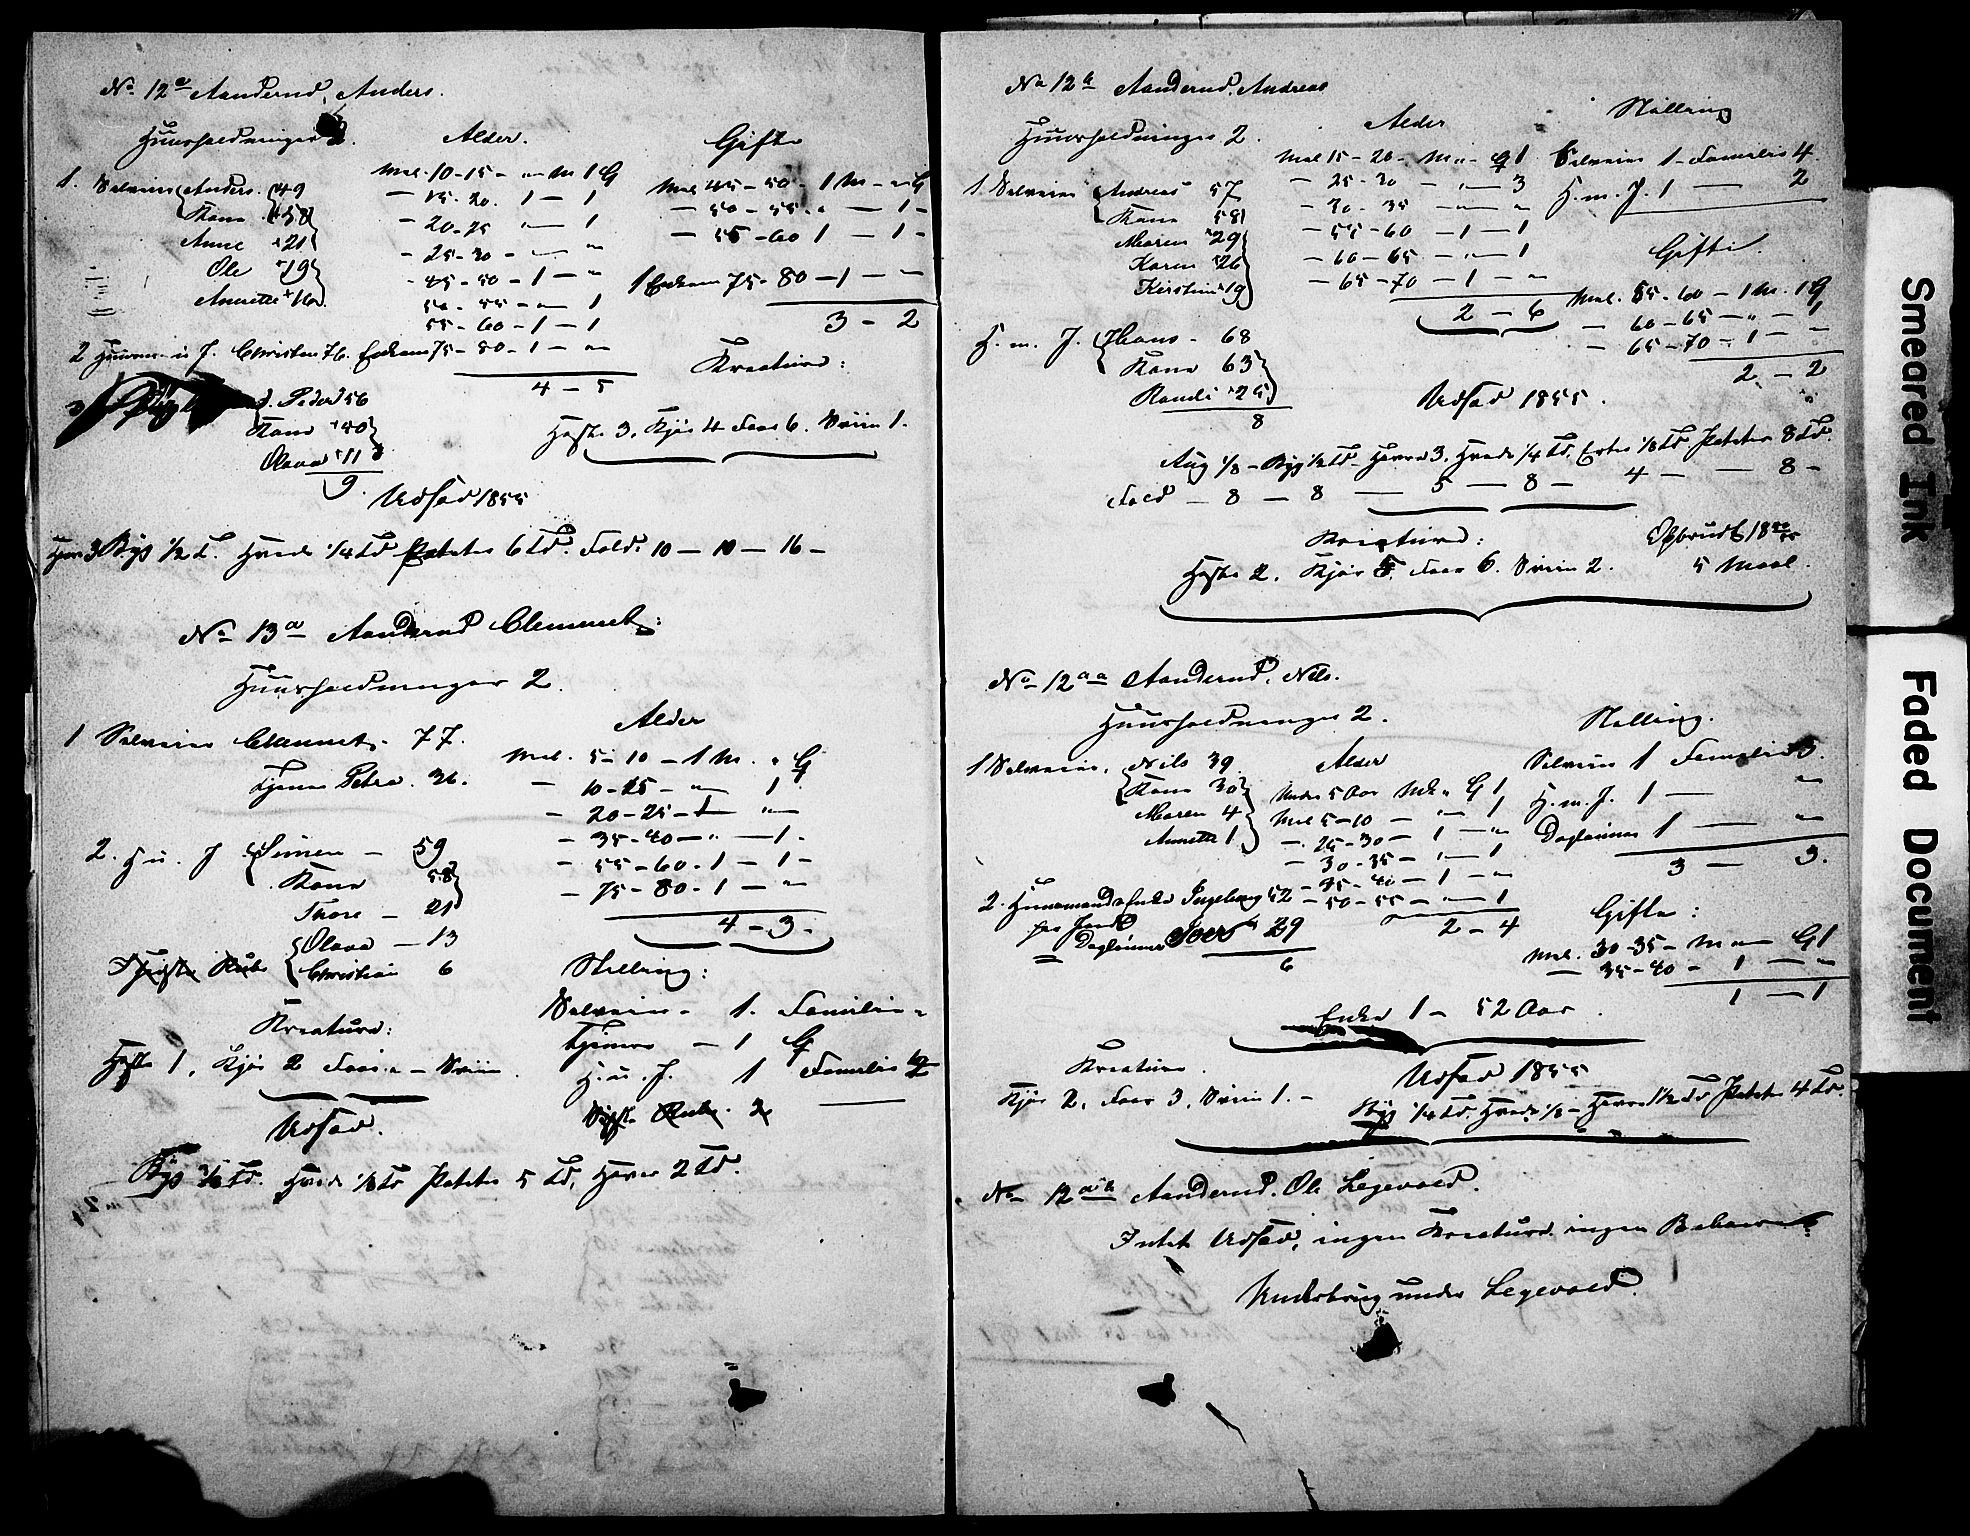 No 12a Aanderud, Anders.
Huusholdninger 2.
Alder.
Gifte
1. Selveier Anders. 49
Kone 58
Anne 21
Ole 19
Annette
Mel. 10-15 - " M 1 G
— 15-20. 1 — 1
— 20-25 " — 1
— 25-30 - " — "
- 45-50 - 1 — "
50-55 - " — 1
55-60 - 1 — 1
Mel 45-50 - 1 M - " G
— 50-55 - " — 1 -
— 55-60 1 — 1 -
1 Enkem 75-80 - 1 — "
3 - 2
2 Huusm. u J. Christen 76. Enkem 75-80 - 1 — "
4 - 5
Kreature:
d. Peder 56
Kone 40
Olava 11
9
Heste 3. Kjør 4 Faar 6. Sviin 1.
Udsæd 1855
Havre 3 Byg 1/2 T. Hvede 1/4 Td Poteter 6 Td. Fold. 10 — 10 — 16 -
No 13a Aanderud Clemmet:
Huusholdninger 2.
Alder
1 Selveier Clemmet. 77.
Tjener Petra. 36.
Mel. 5-10 - 1 M. " G
— 10-15 - " — 1
— 20-25 - 1 — "
— 35-40 - " — 1 -
— 55-60 - 1 — 1 -
— 75-80 - 1 — "
4 - 3 -
2. H u. J Simen — 59
Kone 58
Thore — 21
Olava — 13
Christian 6
Stilling:
Selveier - 1. Familie "
Tjener — 1 G
H. u. J. 1 Familie
Kreature:
Heste 1, Kjør 2 Faar " - Sviin
Udsæd.
Byg Td. Hvede 1/8 Td Poteter 5 Td, Havre 2 Td.
No 12b Aanderud, Andreas
Huusholdninger 2.
Alder
Stilling
1 Selveier Andreas 57
Kone 58
Maren 29
Karen 26
Kirstine 19
Mel 15-20 - M " - G 1
— 25-30 — " — 3
— 30-35 — " — "
— 55-60 — 1 — 1
— 60-65 — " — 1
— 65-70 — 1 — "
2 - 6
Selveier 1 - Familie 4.
H. m. J. 1 — 2
Gifte.
Mel. 55-60 - 1 M. 1 G
— 60-65 — " — 1
— 65-70 - 1 — "
2 - 2
H. m. J. Hans - 68
Kone 63
Randi 25
8
Udsæd 1855.
Rug 1/8 - Byg 1/2 Td - Havre 3. Hvede 1/4 Td, Erter 1/8 Td Poteter 8 Td.
Fold — 8 — 8 — 5 — 8 — 4 — — 8 -
Kreature:
Opbrudt 18
Heste 2. Kjør 5. Faar 6. Sviin 2.
5 Maal.
No 12aa Aanderud, Nils.
Huusholdninger 2.
Stilling.
1 Selveier, Nils 39
Kone 30
Maren 4
Annette 1
Alder
Under 5 Aar Mk " G 1
Mel 5-10 — " — 1
— 25-30 — 1 — "
— 30-35 — " — 1
— 35-40 — 1 — "
— 50-55 — " — 1
2 - 4
Selveier 1 Familie 3.
H. m. J. 1 — "
Dagleiner 1 — "
3 — 3.
2. Huusmandsenke Ingeborg 52
for Jord
Dagleiner Iver 29
6
Gifte:
Mel. 30-35 - M " — G 1
— 35-40 - 1 — "
1 — 1
Enke 1 - 52 Aar.
Kreature.
Kjør 2, Faar 3, Sviin 1. -
Udsæd 1855
Byg 1/4 Td. Hvede 1/8 - Havre 1 1/2 Td Poteter 4 Td.
No 12ab Aanderud. Ole Legevold.
Intet Udsæd, ingen Kreature. ingen Beboere
Underbrug under Legevold.
Smeared Ink
Faded Document